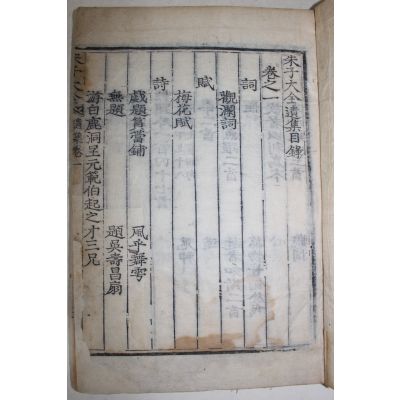 朱子大全遺集目錄
卷之一
詞
觀瀾詞
賦
梅花賦
詩
戲題篔簹鋪 風乎舞雩
無題 題吳壽昌扇
游白鹿洞呈元範伯起之才三兄
朱子大全 遺集卷一